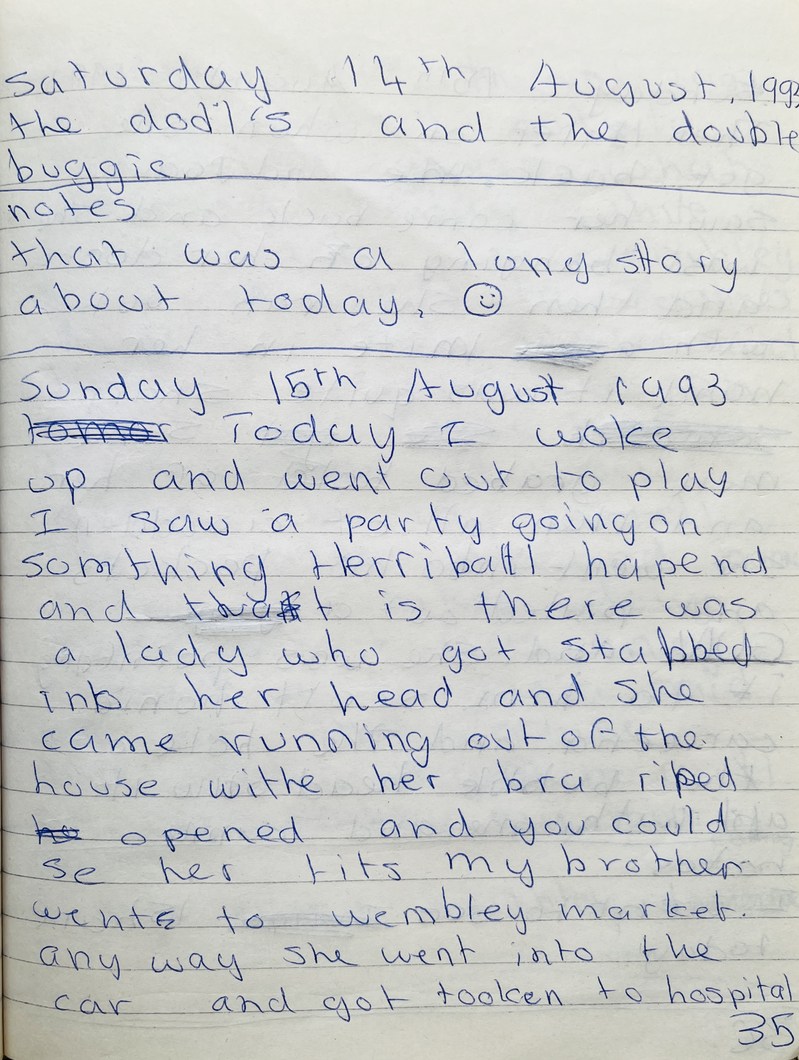 saturday 14th August, 1993
the dodl's and the double
buggie.
notes
that was a long story
about today.
Sunday 15th August 1993
Today I woke
up and went out to play
I saw a party going on
somthing Herriball hapend
and that is there was
a lady who got stabbed
into her head and she
came running out of the
house withe her bra riped
opened and you could
se her tits my brother
wente to wembley market.
any way she went into the
car and got tooken to hospital
35